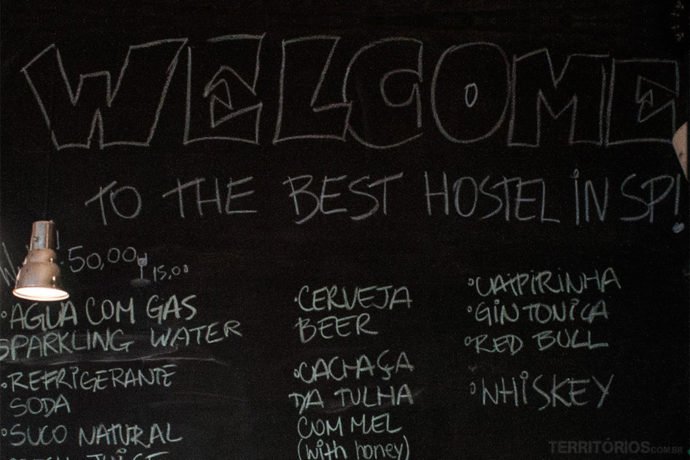 WELCOME
TO THE BEST HOSTEL IN SP!
50,00 15,00
• AGUA COM GAS
SPARKLING WATER
• REFRIGERANTE
SODA
• SUCO NATURAL
FRESH JUICE
• CERVEJA
BEER
• CACHAÇA
DA TULHA
COM MEL
(with honey)
• CAIPIRINHA
• GINTONICA
• RED BULL
• WHISKEY
TERRITÓRIOS.COM.BR